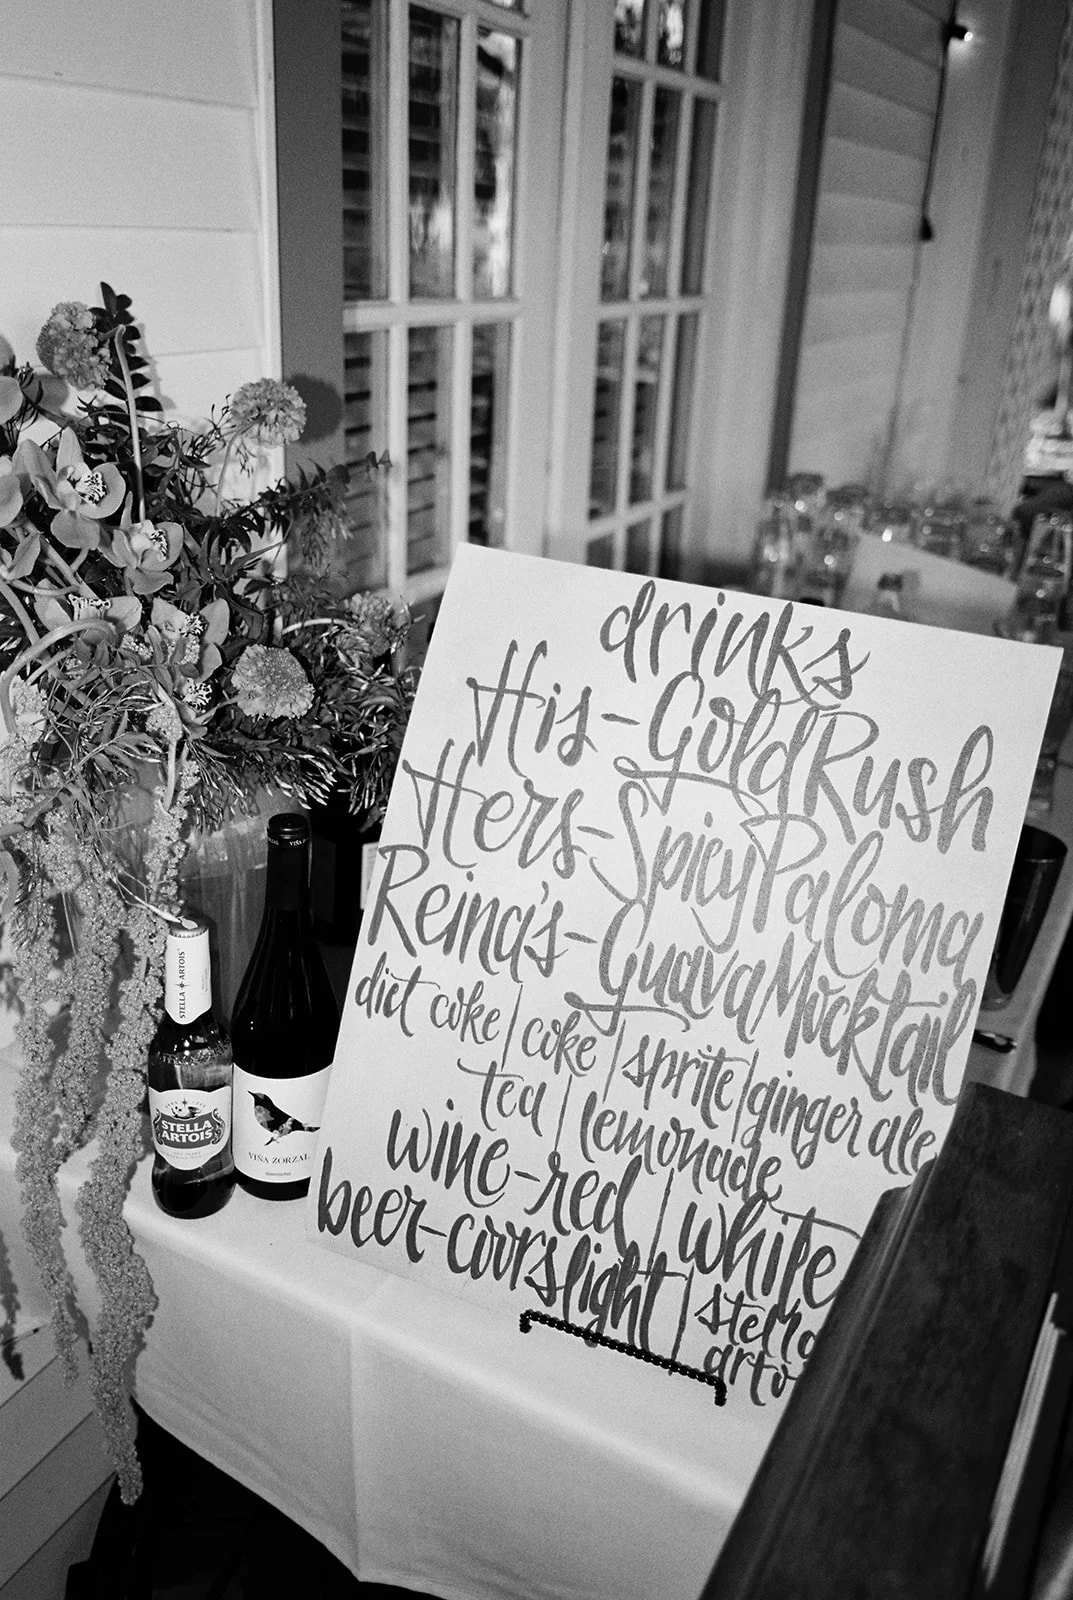 drinks
His-Gold Rush
Hers-Spicy Paloma
Reina's-Guava Mocktail
diet coke | coke | sprite | ginger ale
tea | lemonade
wine-red | white
beer-coors light | stella
arto
STELLA ARTOIS
STELLA
ARTOIS
VIÑA ZORZAL
VIÑA ZORZAL
Garnacha